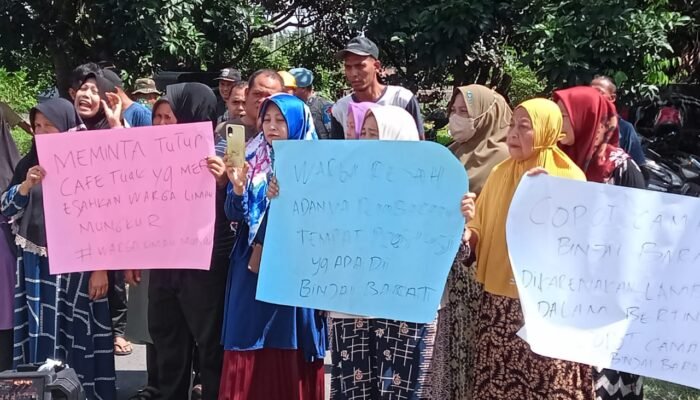 MEMINTA TUTUP
CAFE TUAK YG MER
ESAHKAN WARGA LIMAU
MUNGKUR
#WARGA LIMAU MUN
WARGA RESAH
ADANYA
TEMPAT
YG ADA DI
BINJAI BARAT
COPOT CAMA
BINJAI BARA
DIKARENAKAN LAMB
DALAM BERTIN
COPOT CAMA
BINJAI BARA